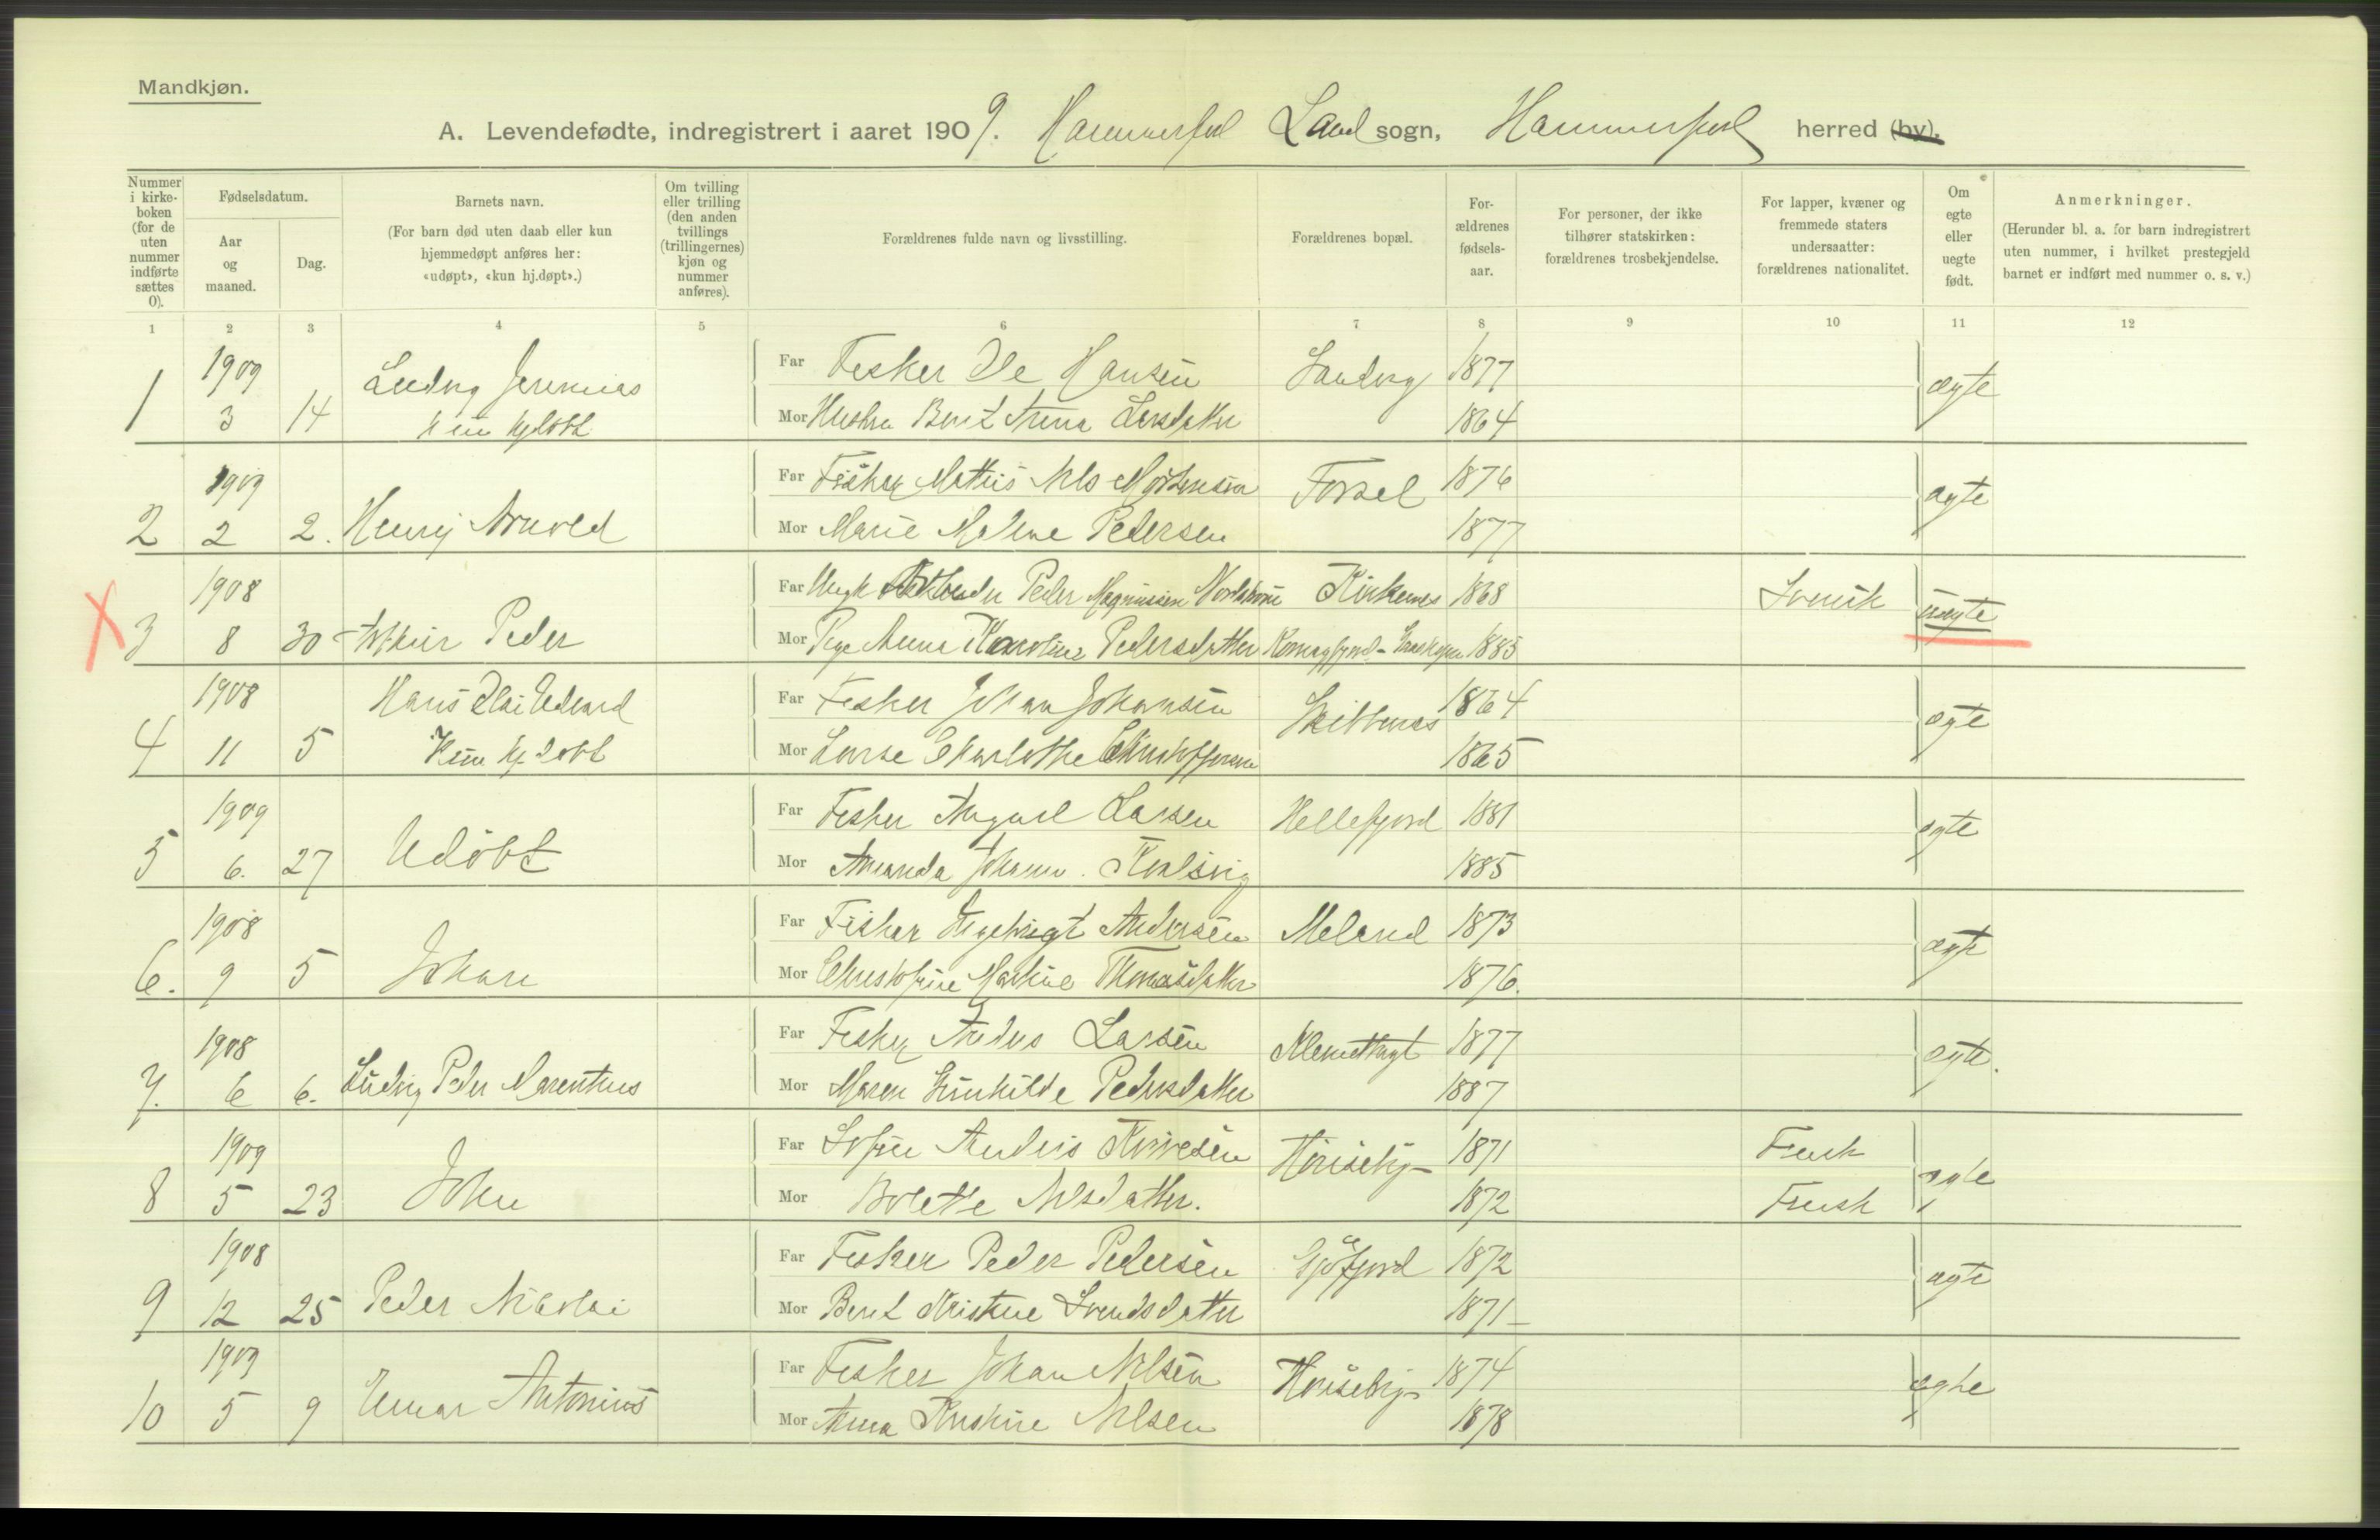 Mandkjøn.
A. Levendefødte, indregistrert i aaret 1909. Hammerfest Land sogn, Hammerfest herred (by).
Nummer i kirkeboken (for de uten nummer indførte sættes 0).
Fødselsdatum.
Aar og maaned.
Dag.
Barnets navn.
(For barn død uten daab eller kun hjemmedøpt anføres her: «udøpt», «kun hj.døpt».)
Om tvilling eller trilling (den anden tvillings (trillingernes) kjøn og nummer anføres).
Forældrenes fulde navn og livsstilling.
Forældrenes bopæl.
Forældrenes fødselsaar.
For personer, der ikke tilhører statskirken: forældrenes trosbekjendelse.
For lapper, kvæner og fremmede staters undersaatter: forældrenes nationalitet.
Om egte eller uegte født.
Anmerkninger.
(Herunder bl. a. for barn indregistrert uten nummer, i hvilket prestegjeld barnet er indført med nummer o. s. v.)
1 2 3 4 5 6 7 8 9 10 11 12
1909 Ludvig Jeremias Far Fisker Ole Hansen 1877 ægte
1 3 14 Kun hjdøbt Mor Hustru Berit Anna Larsdatter 1864
1909 Far Fisker Mathis Nils Mortensen 1876 ægte
2 2 2. Henry Arnold Mor Marie Malene Pedersen 1877
1908 Far Ungk Peder Magnussen Kirkenes 1868 Svensk uægte
3 8 30 Arthur Peder Mor Pige Anna Karoline Pedersdatter Komagfjord 1885
1908 Hans Edvard Far Fisker Johan Johansen 1864 ægte
4 11 5 Kun hj døbt Mor Charlothe 1865
1909 Far Fisker August Larsen Hellefjord 1881 ægte
5 6. 27 Udøbt Mor Amanda Johanne 1885
1908 Far Fisker Ingebrigt Andersen Meland 1873 ægte
6. 9 5 Johan Mor Christofine Martine Thomasdatter 1876.
1908 Far Fisker Anders Larsen 1877 ægte.
7. 6 6. Ludvig Peder Marentius Mor Maren Gunhilde Pedersdatter 1887
1909 Far Anders 1871 Finsk ægte
8 5 23 John Mor Bolette Nilsdatter. 1872 Finsk
1908 Far Fisker Peder Pedersen 1872 ægte
9 12 25 Peder Nikolai Mor Berit Kristine Svendsdatter 1871
1909 Far Fisker Johan Nilsen 1874 ægte
10 5 9 Antonius Mor Anna Kristine Nilsen 1878